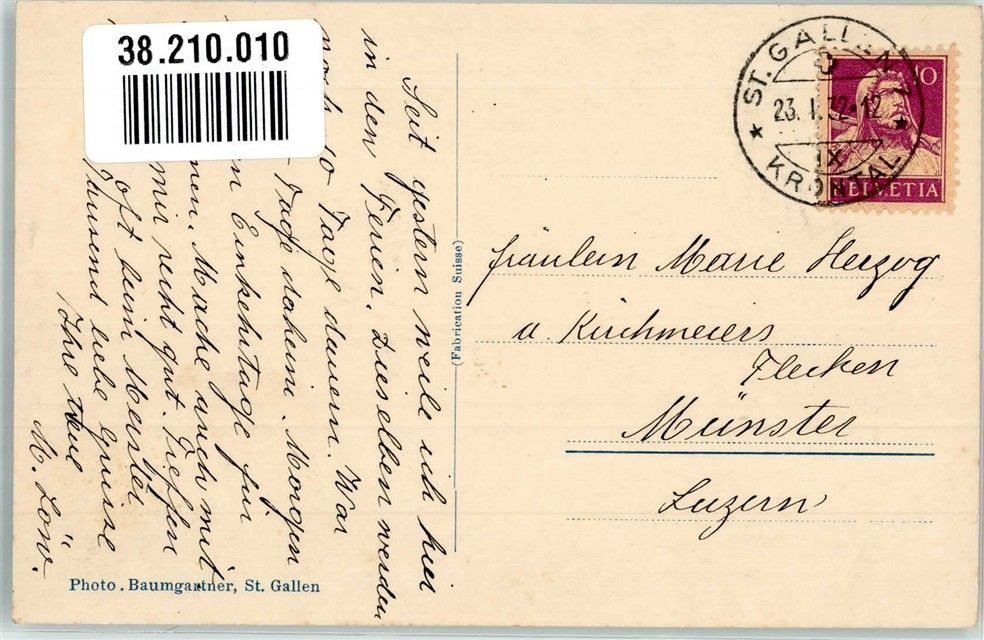 38.210.010
ST. GALLEN
23. I. 32-12
IX
KRONTAL
10
HELVETIA
Seit gestern weile ich hier
in den Ferien. Dieselben werden
noch 10 Tage dauern. War
Tage daheim. Morgen
Einkehrtage für
Mache auch mit
mir recht gut. Treffen
oft beim Meister
Tausend liebe Grüsse
Ihre treue
M. Löw.
(Fabrication Suisse)
Fräulein Marie Herzog
a Kirchmeiers
Flecken
Münster
Luzern
Photo. Baumgartner, St. Gallen